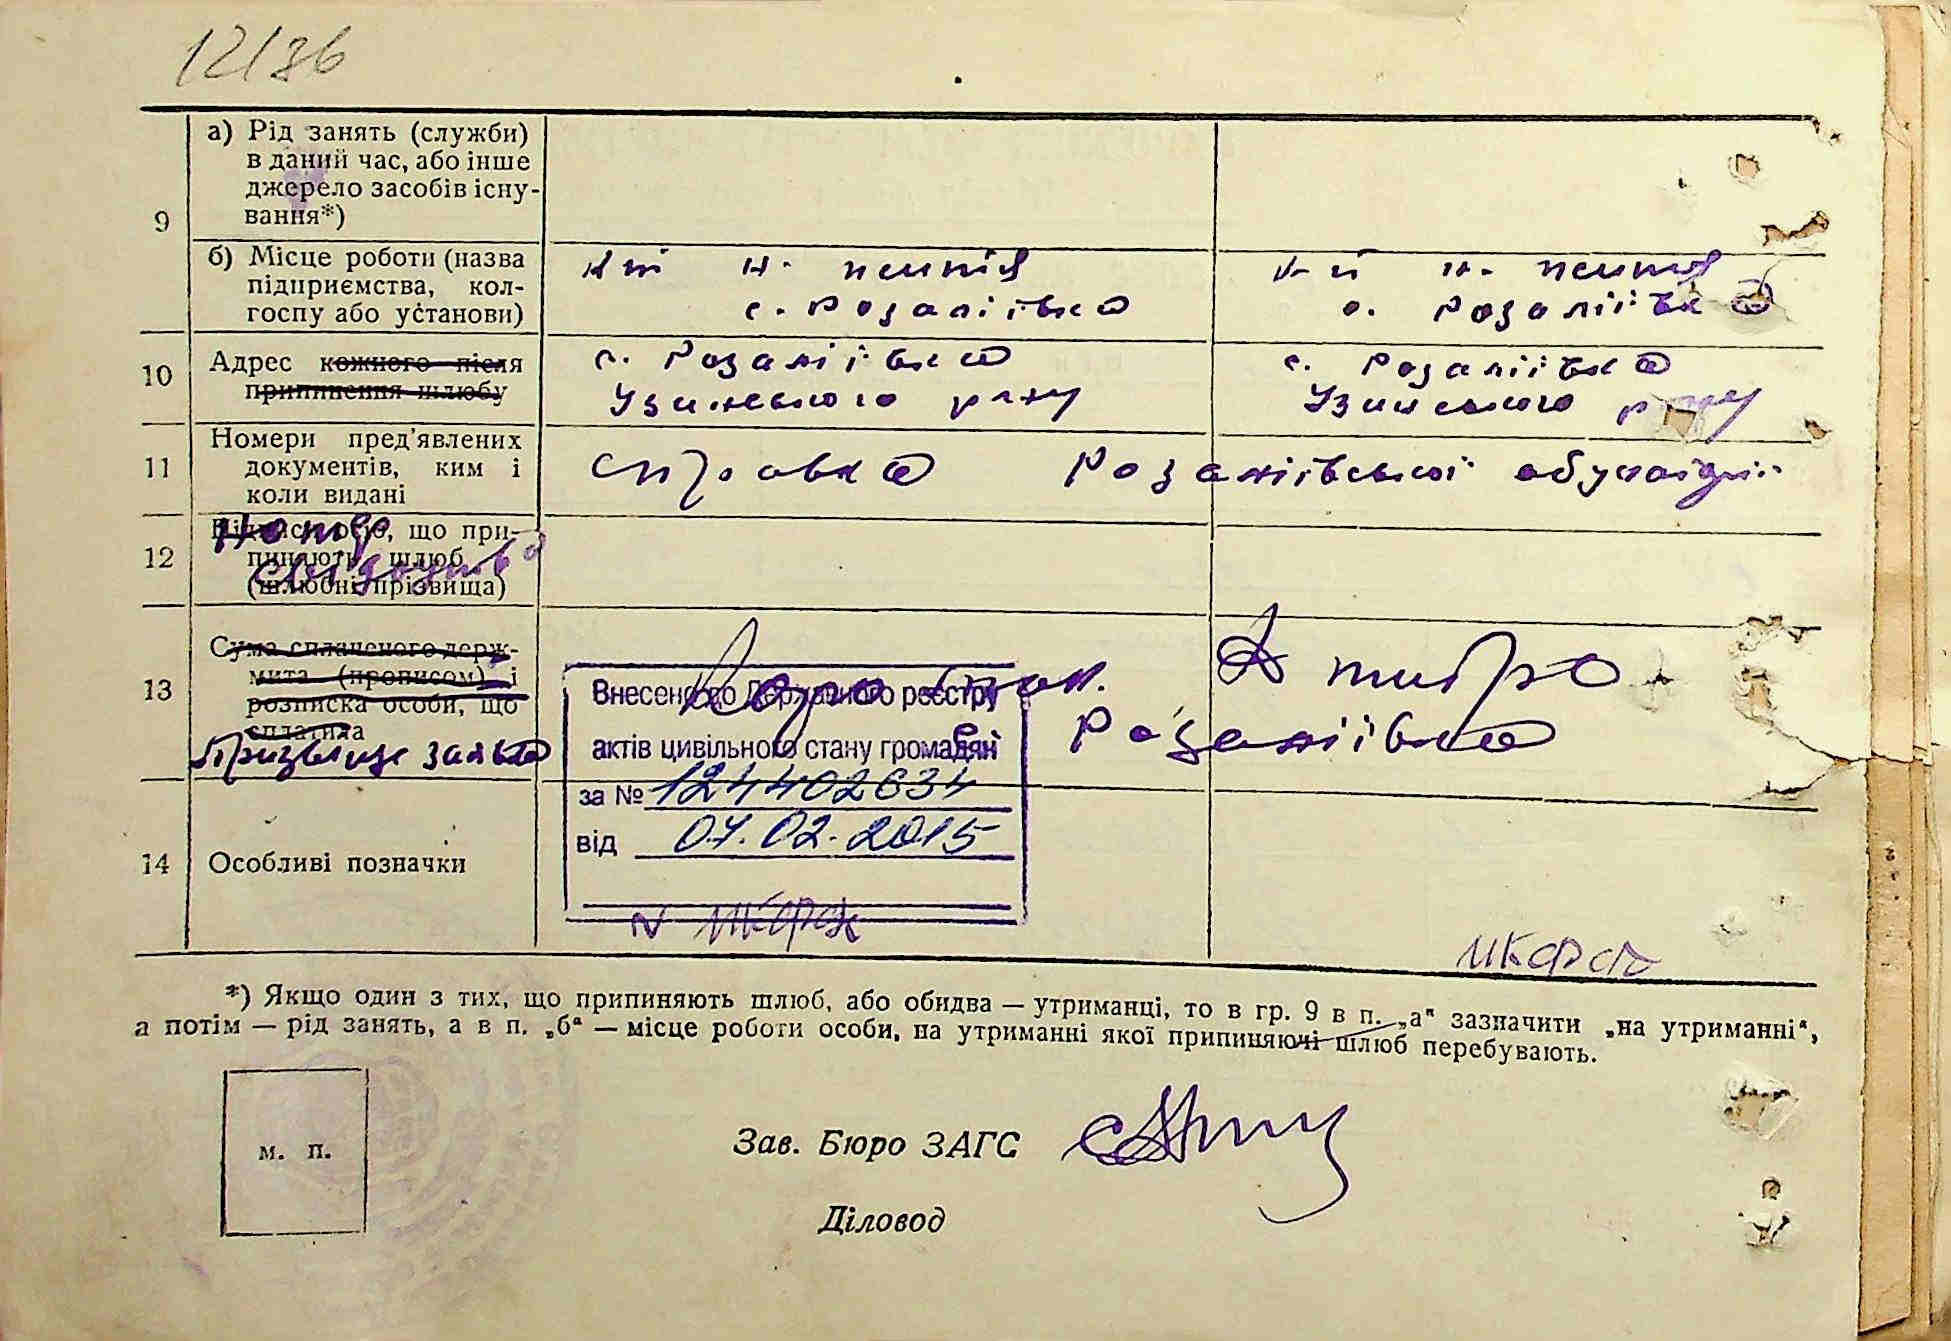 12/36
9
а) Рід занять (служби)
в даний час, або інше
джерело засобів існу-
вання*)
б) Місце роботи (назва
підприємства, кол-
госпу або установи)
с. Розаліївка
с. Розаліївка
10
Адрес кожного після
припинення шлюбу
с. Розаліївка
Узинського р-ну
с. Розаліївка
Узинського р-ну
11
Номери пред'явлених
документів, ким і
коли видані
справка Розаліївської
12
що при-
пиняють шлюб
(шлюбні прізвища)
13
Сума сплаченого держ-
мита (прописом) і
розписка особи, що
сплатила
Прізвище
Дмитро
Розаліївка
Внесено до Державного реєстру
актів цивільного стану громадян
за № 124402634
від 07.02.2015
14
Особливі позначки
*) Якщо один з тих, що припиняють шлюб, або обидва — утриманці, то в гр. 9 в п. „а“ зазначити „на утриманні“,
а потім — рід занять, а в п. „б“ — місце роботи особи, на утриманні якої припиняючі шлюб перебувають.
м. п.
Зав. Бюро ЗАГС
Діловод